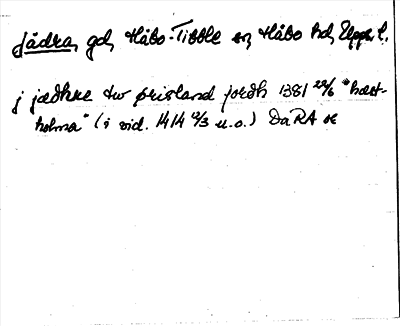 Jädra, gd, Håbo-Tibble sn, Håbo hd, Uppl. l.
j jædhre tw ørisland jordh 1381 22/6 "hæst-
holma" (i vid. 1414 12/3 u.o.) DaRA or